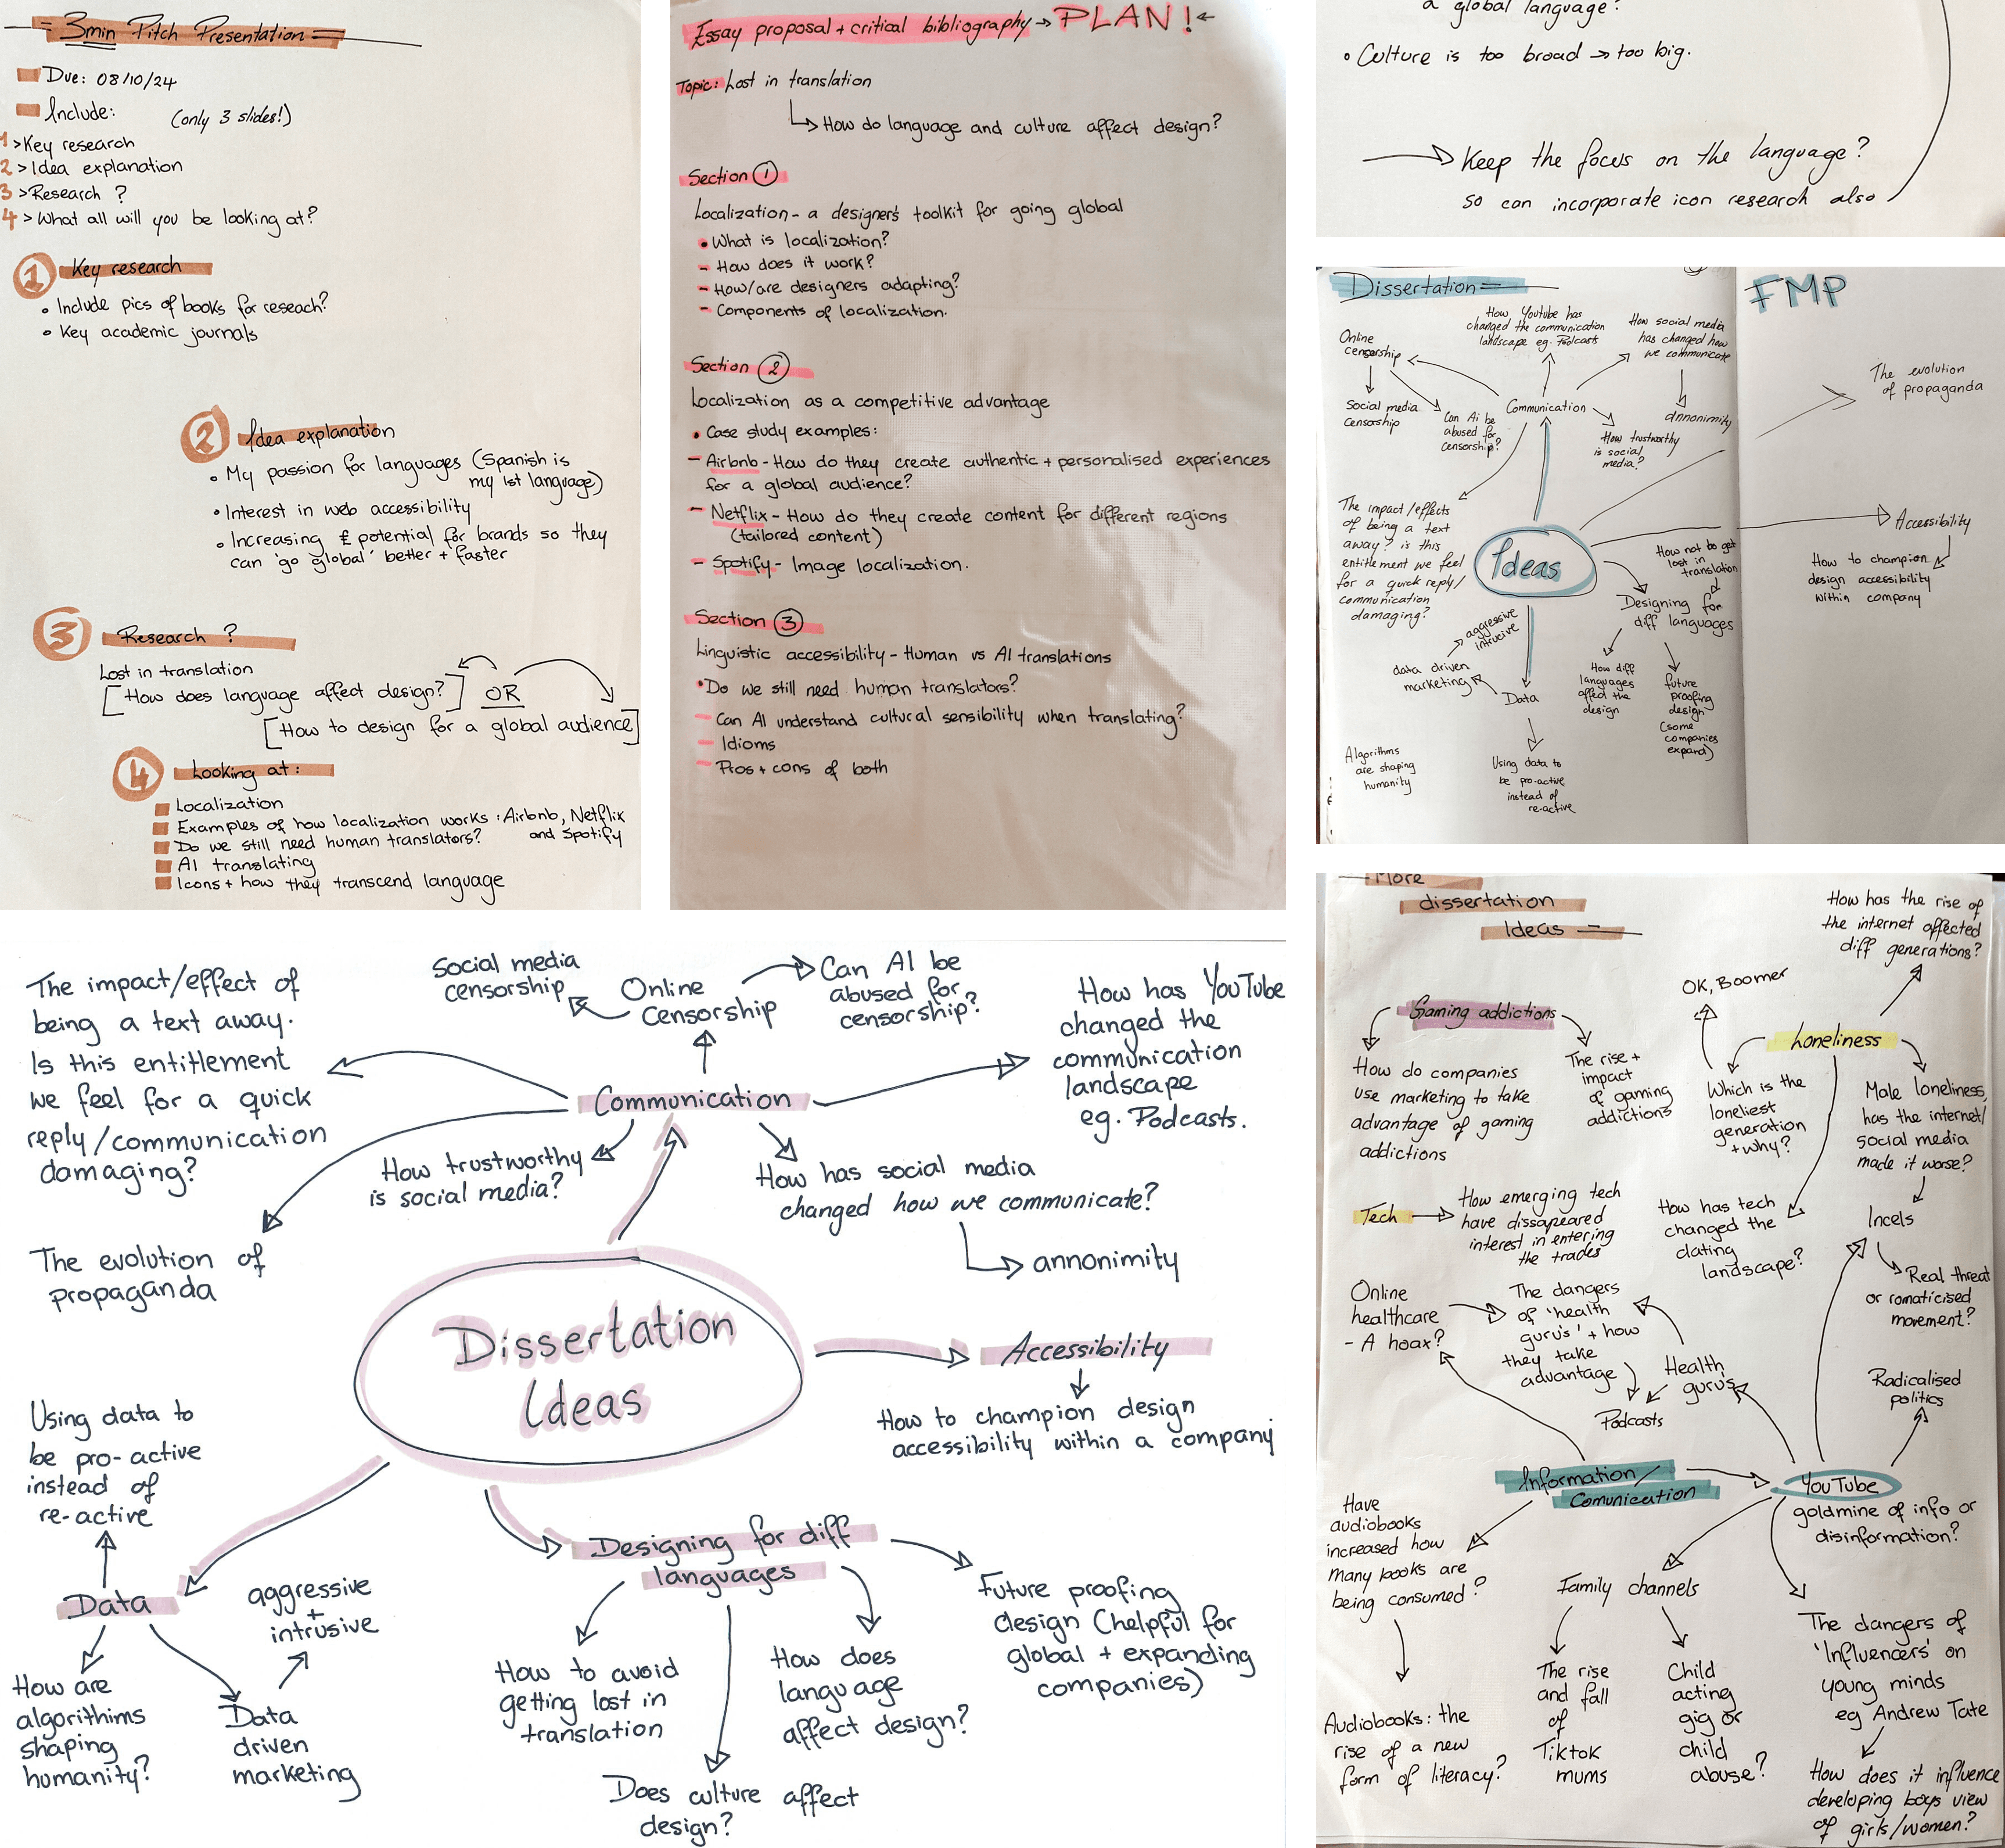 = 3min Pitch Presentation =
Due: 08/10/24
Include: (only 3 slides!)
1 > Key research
2 > Idea explanation
3 > Research ?
4 > What all will you be looking at?
1 Key research
• Include pics of books for reseach?
• Key academic journals
2 Idea explanation
• My passion for languages (Spanish is
my 1st language)
• Interest in web accessibility
• Increasing £ potential for brands so they
can 'go global' better + faster
3 Research ?
Lost in translation
[How does language affect design?] OR
[How to design for a global audience]
4 Looking at:
Localization
Examples of how localization works: Airbnb, Netflix
and Spotify
Do we still need human translators?
AI translating
Icons + how they transcend language
Essay proposal + critical bibliography → PLAN! ←
Topic: Lost in translation
↳ How do language and culture affect design?
Section 1
Localization - a designer's toolkit for going global
• What is localization?
- How does it work?
- How/are designers adapting?
- Components of localization.
Section 2
Localization as a competitive advantage
• Case study examples:
- Airbnb - How do they create authentic + personalised experiences
for a global audience?
- Netflix - How do they create content for different regions
(tailored content)
- Spotify - Image localization.
Section 3
Linguistic accessibility - Human vs AI translations
• Do we still need human translators?
- Can AI understand cultural sensibility when translating?
- Idioms
- Pros + cons of both
a global language?
• Culture is too broad → too big.
→ Keep the focus on the language?
so can incorporate icon research also
Dissertation
FMP
Online
censorship
How Youtube has
changed the communication
landscape eg. Podcasts
How social media
has changed how
we communicate
The evolution
of propaganda
Social media
censorship
Can Ai be
abused for
censorship?
Communication
How trustworthy
is social
media?
annonimity
The impact/effects
of being a text
away? is this
entitlement we feel
for a quick reply/
communication
damaging?
Ideas
Accessibility
How to champion
design accessibility
within company
How not to get
lost in
translation
Designing for
diff languages
How diff
languages
affect the
design
future
proofing
design
(some
companies
expand)
aggressive
intrucive
data driven
marketing
Data
Algorithms
are shaping
humanity
Using data to
be pro-active
instead of
re-active
The impact/effect of
being a text away.
Is this entitlement
we feel for a quick
reply/communication
damaging?
Social media
censorship
Online
Censorship
Can AI be
abused for
censorship?
How has YouTube
changed the
communication
landscape
eg. Podcasts.
Communication
How trustworthy
is social media?
How has social media
changed how we communicate?
annonimity
The evolution of
propaganda
Dissertation
Ideas
Accessibility
How to champion design
accessibility within a company
Using data to
be pro-active
instead of
re-active
Data
aggressive
+
intrusive
How are
algorithims
shaping
humanity?
Data
driven
marketing
Designing for diff
languages
How to avoid
getting lost in
translation
Does culture affect
design?
How does
language
affect design?
Future proofing
design (helpful for
global + expanding
companies)
More
dissertation
Ideas
How has the rise of
the internet affected
diff generations?
OK, Boomer
Gaming addictions
How do companies
use marketing to take
advantage of gaming
addictions
The rise +
impact
of gaming
addictions
Loneliness
Which is the
loneliest
generation
+ why?
Male loneliness,
has the internet/
social media
made it worse?
Tech → How emerging tech
have dissapeared
interest in entering
the trades
How has tech
changed the
dating
landscape?
Incels
Real threat
or romaticised
movement?
Online
healthcare
- A hoax?
The dangers
of 'health
guru's' + how
they take
advantage
Health
guru's
Podcasts
Radicalised
politics
Information/
Comunication
YouTube
goldmine of info or
disinformation?
Have
audiobooks
increased how
many books are
being consumed?
Audiobooks: the
rise of a new
form of literacy?
Family channels
The rise
and fall
of
Tiktok
mums
Child
acting
gig or
child
abuse?
The dangers of
'Influencers' on
young minds
eg Andrew Tate
How does it influence
developing boys view
of girls/women?